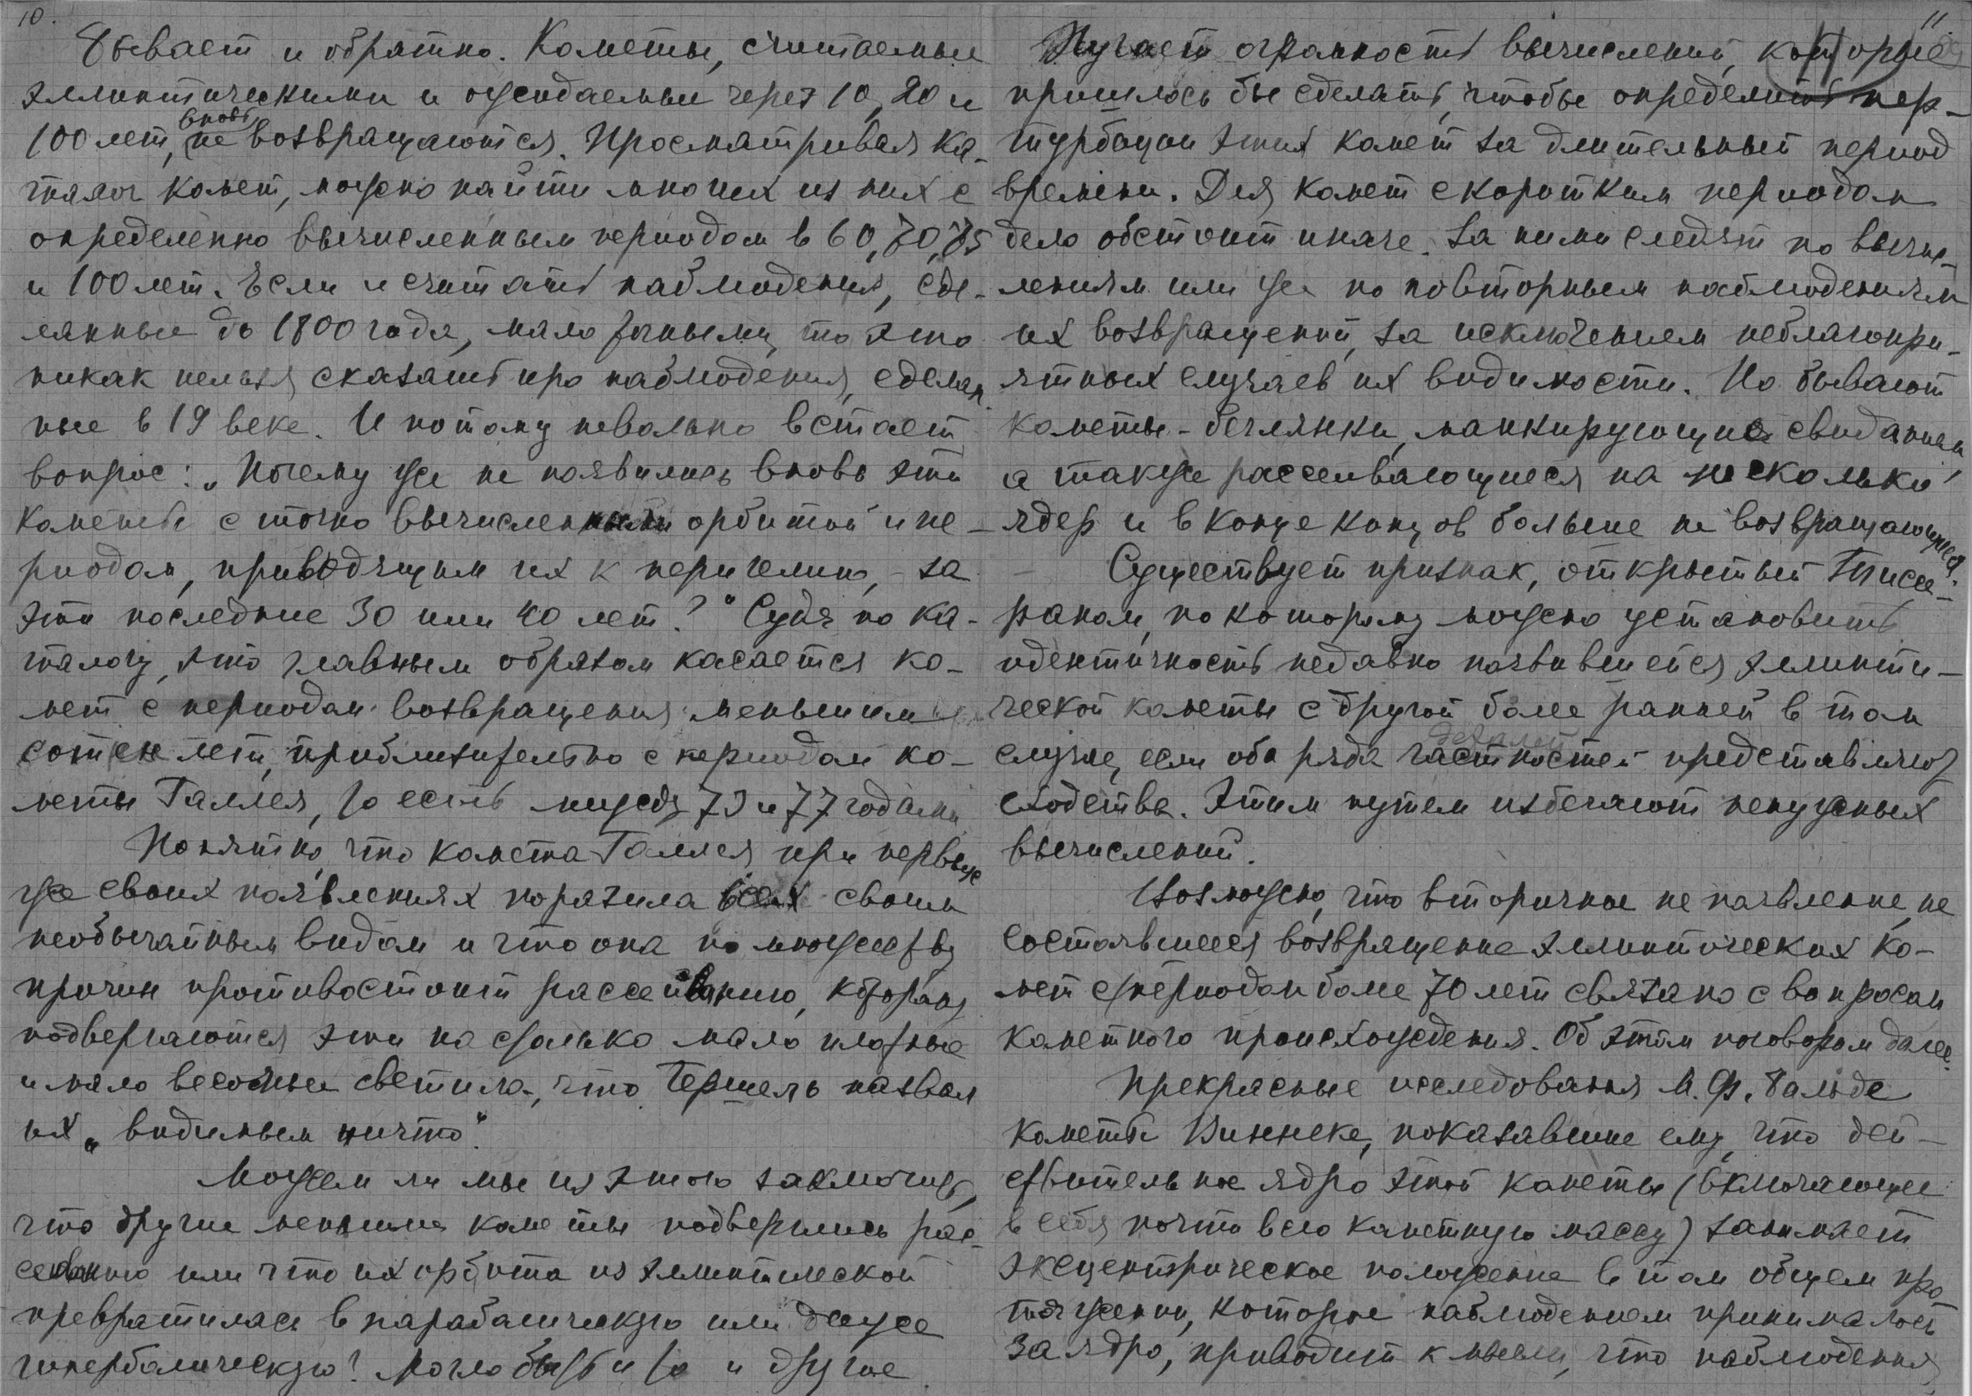 10.
Бывает и обратно. Кометы, считаемые
эллиптическими и ожидаемые через 10, 20 и
100 лет, вновь не возвращаются. Просматривая ка-
талог комет, можно найти многих из них с
определённо вычисленным периодом в 60, 70, 75
и 100 лет. Если и считать наблюдения, сде-
ланные до 1800 года, мало точными, то это
никак нельзя сказать про наблюдения, сделан-
ные в 19 веке. И потому невольно встаёт
вопрос: „Почему же не появились вновь эти
кометы с точно вычисленной орбитой и пе-
риодом, приводящим их к перигелию, за
эти последние 30 или 40 лет?" Судя по ка-
талогу, это главным образом касается ко-
мет с периодом возвращения меньшим
сотен лет, приблизительно с периодом ко-
меты Галлея, то есть между 73 и 77 годами.
Понятно, что комета Галлея при первых
же своих появлениях поразила всех своим
необычайным видом и что она по множеству
причин противостоит рассеиванию, которому
подвергаются эти на столько мало плотные
и мало весомые светила, что Гершель назвал
их „видимым ничто".
Можем ли мы из этого заключить,
что другие меньшие кометы подверглись рас-
сеиванию или что их орбита из эллиптической
превратилась в параболическую или даже
гиперболическую? Могло быть и то и другое.
11
Пугает огромность вычислений, которые
пришлось бы сделать, чтобы определить пер-
турбации этих комет за длительный период
времени. Для комет с коротким периодом
дело обстоит иначе. За ними следят по вычис-
лениям или же по повторным наблюдениям
их возвращений, за исключением неблагопри-
ятных случаев их видимости. Но бывают
кометы-беглянки, манкирующие свиданием,
а также рассеивающиеся на несколько
ядер и в конце концов больше не возвращающиеся.
Существует признак, открытый Тиссе-
раном, по которому можно установить
идентичность недавно появившейся эллипти-
ческой кометы с другой более ранней в том
деталей
случае, если оба ряда частностей представляют
сходство. Этим путём избегают ненужных
вычислений.
Возможно, что вторичное не появление, не
состоявшееся возвращение эллиптических ко-
мет с периодом более 70 лет связано с вопросом
кометного происхождения. Об этом поговорим далее.
Прекрасные исследования А. Ф. Вальде
кометы Виннеке, показавшие ему, что дей-
ствительное ядро этой кометы (включающее
в себя почти всю кометную массу) занимает
эксцентрическое положение в том общем про-
тяжении, которое наблюдением принималось
за ядро, приводит к мысли, что наблюдения